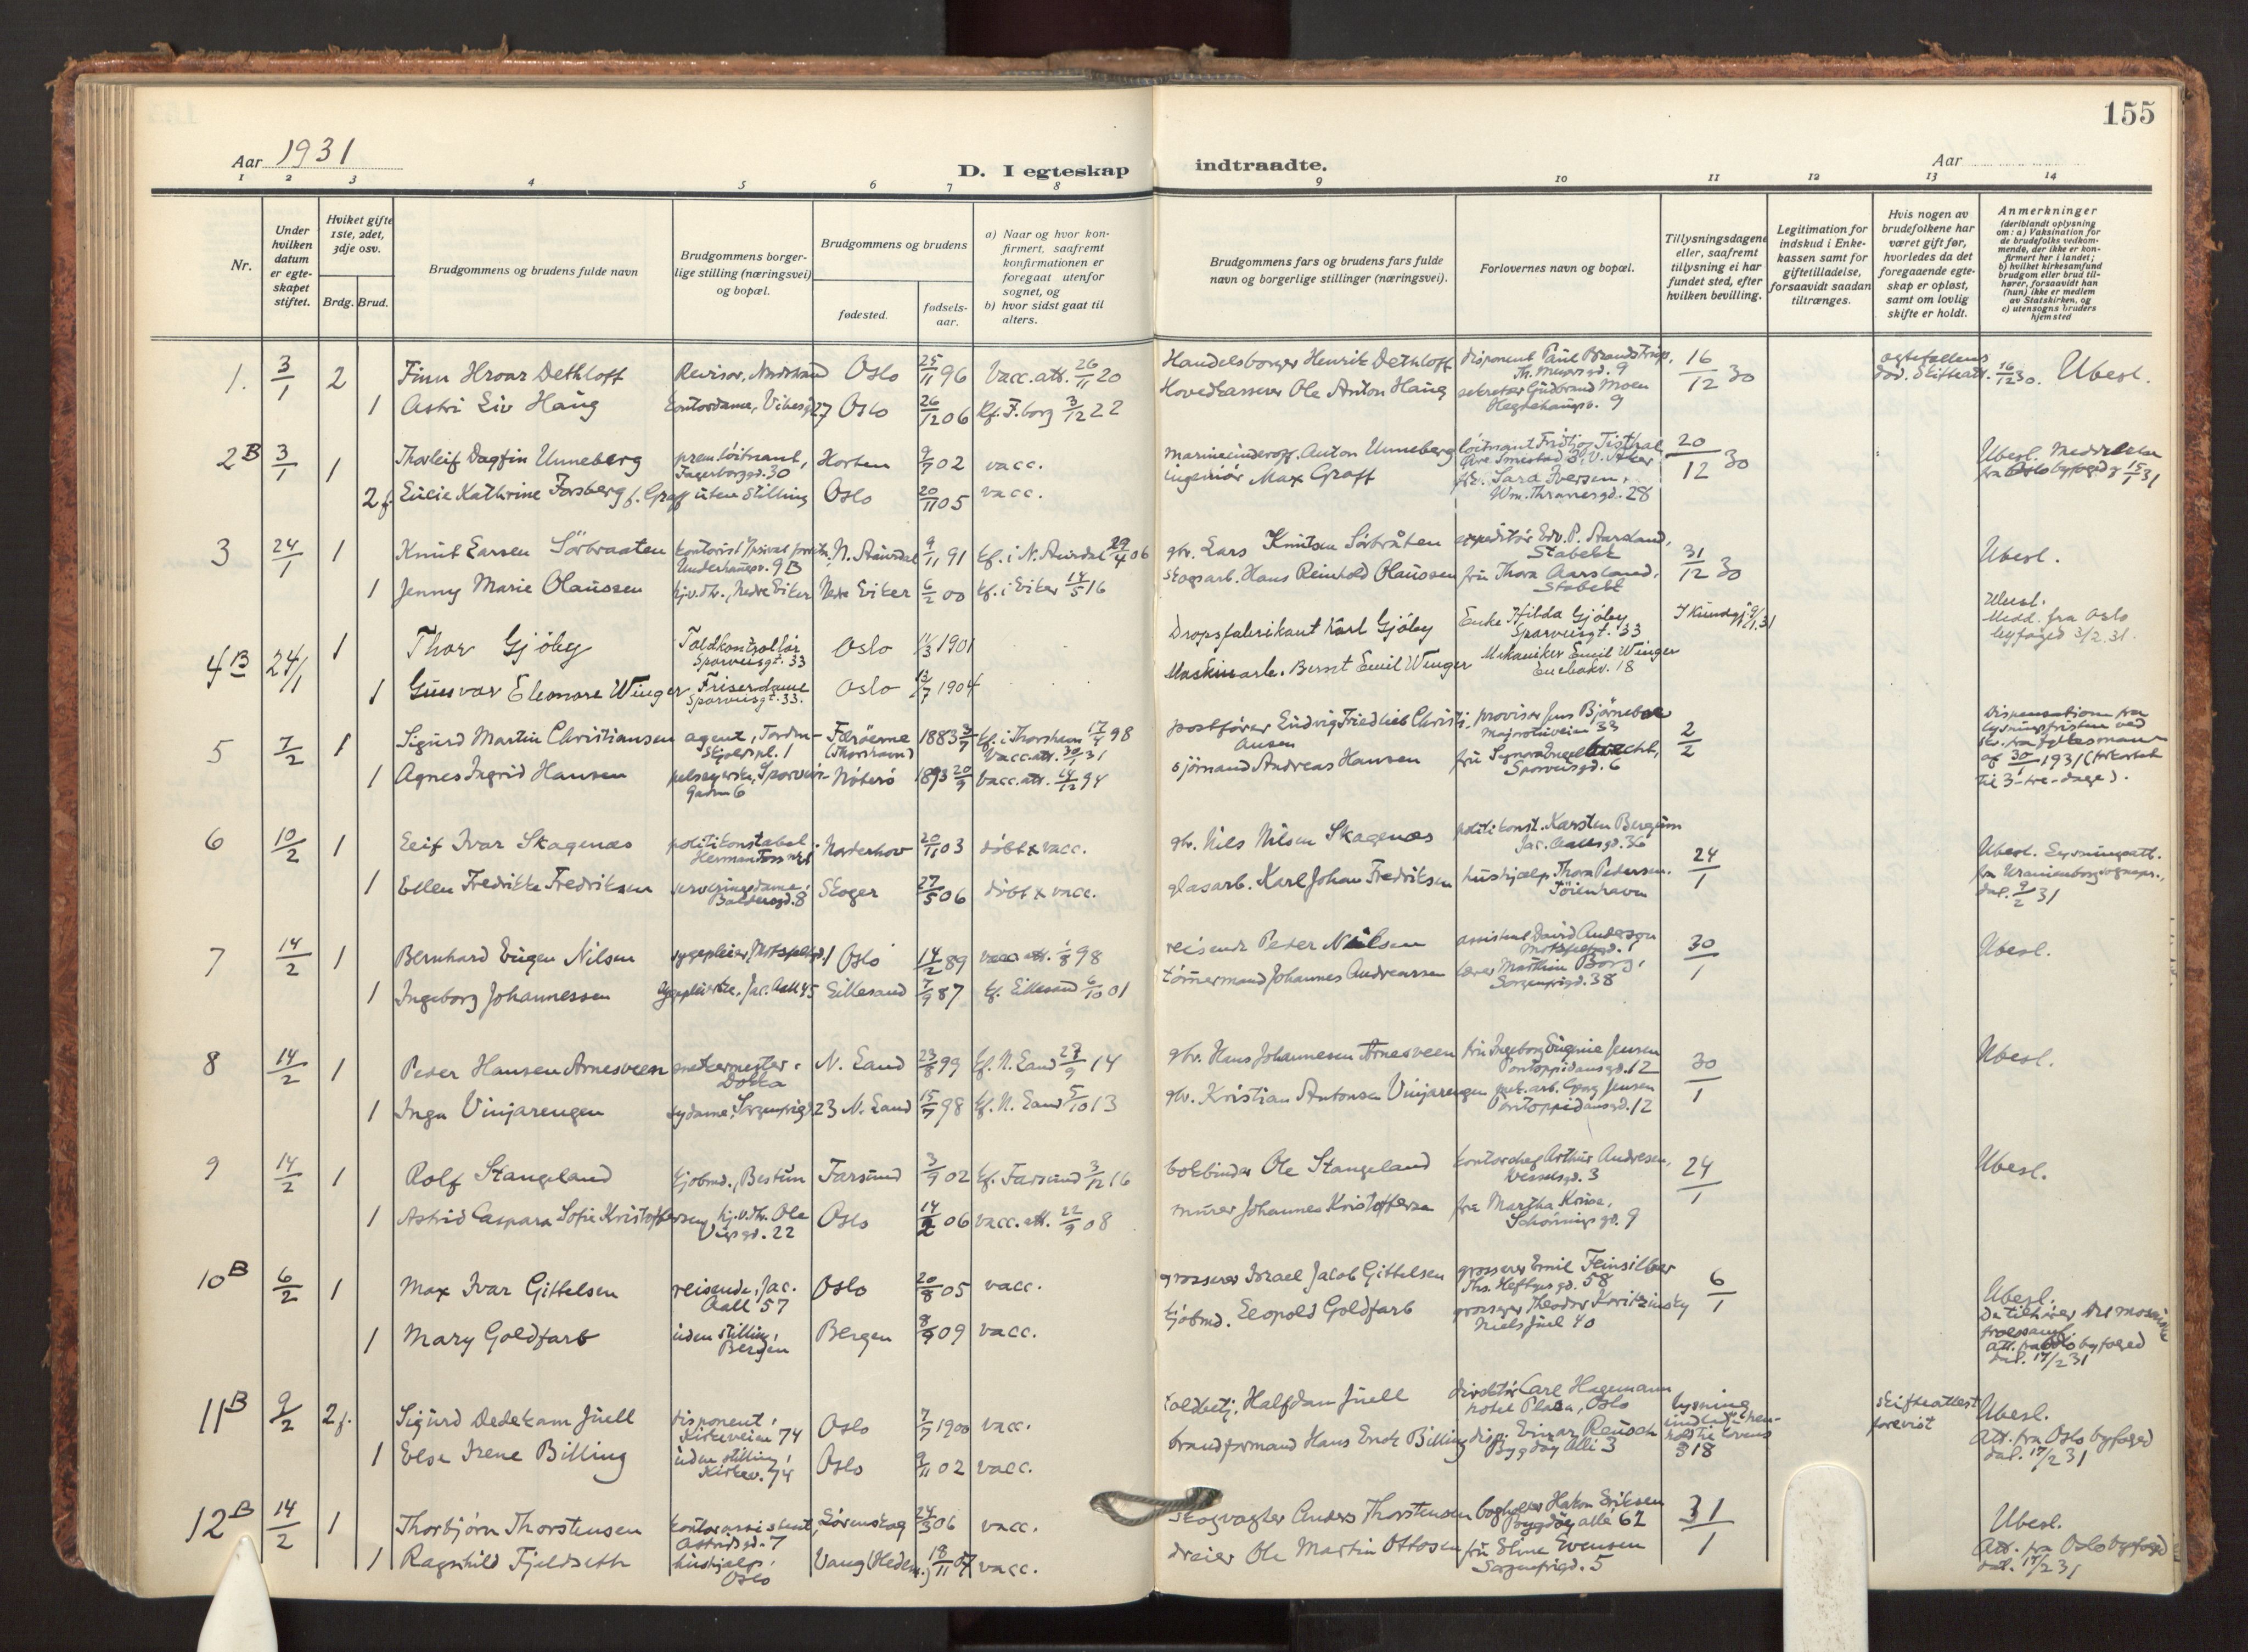 155
Aar 1931
D. I egteskap indtraadte.
Aar
1 2 3 4 5 6 7 8 9 10 11 12 13 14
Nr.
Under hvilken datum er egteskapet stiftet.
Hviket gifte 1ste, 2det, 3dje osv.
Brdg. Brud.
Brudgommens og brudens fulde navn
Brudgommens borgerlige stilling (næringsvei) og bopæl.
Brudgommens og brudens
fødested.
fødselsaar.
a) Naar og hvor konfirmert, saafremt konfirmationen er foregaat utenfor sognet, og
b) hvor sidst gaat til alters.
Brudgommens fars og brudens fars fulde navn og borgerlige stillinger (næringsvei).
Forlovernes navn og bopæl.
Tillysningsdagene eller, saafremt tillysning ei har fundet sted, efter hvilken bevilling.
Legitimation for indskud i Enkekassen samt for giftetilladelse, forsaavidt saadan tiltrænges.
Hvis nogen av brudefolkene har været gift før, hvorledes da det foregaaende egteskap er opløst, samt om lovlig skifte er holdt.
Anmerkninger (deriblandt oplysning om: a) Vaksination for de brudefolks vedkommende, der ikke er konfirmert her i landet; b) hvilket kirkesamfund brudgom eller brud tilhører, forsaavidt han (hun) ikke er medlem av Statskirken, og c) utensogns bruders hjemsted
1. 3/1 2 Finn Hroar Dethloff Revisor, Nordstrand Oslo 25/11 96 Vacc. att. 26/11 20 Handelsborger Henrik Dethloff disponent Paul Brandstrup, Th. Meyersgd. 9 16/12 30 egtefællens død. Skifteatt. 16/12 30. Ubesl.
1 Astri Liv Haug kontordame, Vibesgd. 27 Oslo 26/12 06 kf. F.borg 3/12 22 Hovedkasserer Ole Anton Haug sekretær Gudbrand Moen Hegdehaugsv. 9
2B 3/1 1 Thorleif Dagfin Unneberg prem. løitnant, Fagerborggd. 30 Horten 9/7 02 vacc. marineunderoff. Anton Unneberg løitnant Fridtjof Tisthal, Øvre Smestad B, V. Aker 20/12 30 Ubesl. Meddelelse fra Oslo byfoged 15/1 31
2 f. Lucie Kathrine Forsberg f. Graff uten stilling Oslo 20/11 05 vacc. ingeniør Max Graff frk. Sara Iversen, Wm. Thranesgd. 28
3 24/1 1 Knut Larsen Sörbraaten kontorist i privat forretn. Underhaugsv. 9 B N. Aurdal 9/11 91 kf. i N. Aurdal 29/4 06 gbr. Lars Knutsen Sörbråten expeditör Edv. P. Aarsland, Stabekk 31/12 30 Ubesl.
1 Jenny Marie Olaussen hj. v. Th., Nedre Eiker Nedre Eiker 6/2 00 kf. i Eiker 14/5 16 skogsarb. Hans Reinhold Olaussen fru Thora Aarsland, Stabekk
4B 24/1 1 Thor Gjöby Toldkontrollör Sporveisgt. 33 Oslo 11/3 1901 Dropsfabrikant Karl Gjöby Enke Hilda Gjöby, Sporveisgt. 33 Ubesl. Medd. fra Oslo byfoged 3/2 31.
1 Gunvor Eleonore Winger Friserdame Sporveisgt. 33. Oslo 13/7 1904 Maskinarb. Bernt Emil Winger Mekaniker Emil Winger Enebakv. 18
5 7/2 1 Sigurd Martin Christiansen agent, Tordenskjoldspl. 1 Færöerne (Thorshavn) 1883 3/7 kf. i Thorshavn 17/4 98 Vacc. att. 30/1 31 postförer Ludvig Friedlieb Christiansen provisor Jens Björneboe Majorstuveien 33 2/2 Dispensation fra lysningsfristen ved skr. fra fylkesmannen af 30/1 1931 (forkortet til 3 - tre - dage).
1 Agnes Ingrid Hansen pelssyerske, Sporveisgaden 6 Nöterö 1893 20/9 Vacc. att. 14/12 94 sjömand Andreas Hansen fru Signora Engelbrecht, Sporveisgd. 6
6 10/2 1 Leif Ivar Skagenæs politikonstabel Norderhov 20/11 03 döbt & vacc. gbr. Nils Nilsen Skagenæs politikonst. Karsten Bergum Jac. Aallsgd. 36 24/1 Ubesl. Lysningsatt. fra Uranienborg sognepr., dat. 9/2 31
1 Ellen Fredrikke Fredriksen serveringsdame, Baldersgd. 8 Skoger 27/5 06 döbt & vacc. glasarb. Karl Johan Fredriksen hushjælp Thora Pedersen. Töienhaven
7 14/2 1 Bernhard Eugen Nilsen sygepleier, Motzfeldtsgd. 1 Oslo 14/2 89 vacc. att. 1/8 98 reisende Peter Nilsen assistent David Anderson Motzfeldtsgd. 1 30/1 Ubesl.
1 Ingeborg Johannessen sygepleierske, Jac. Aall 45 Lillesand 7/9 87 kf. Lillesand 6/10 01 tömmermand Johannes Andreassen lærer Mathias Borg, Sorgenfrigd. 38
8 14/2 1 Peder Hansen Arnesveen snekermester, Dokka N. Land 23/8 99 kf. N. Land 27/9 14 gbr. Hans Johannesen Arnesveen fru Ingeborg Eugenie Jensen Pontoppidansgd. 12 30/1 Ubesl.
1 Inga Vinjarengen sydame, Sorgenfrigd. 23 N. Land 15/7 98 kf. N. Land 5/10 13 gbr. Kristian Antonsen Vinjarengen Georg Jensen Pontoppidansgd. 12
9 14/2 1 Rolf Stangeland kjöbmd., Bestum Farsund 3/9 02 kf. Farsund 3/12 16 bokbinder Ole Stangeland kontorchef Arthur Andresen, Wesselsgd. 3 24/1 Ubesl.
1 Astrid Caspara Sofie Kristoffersen, hj. v. Th. Ole Vigsgd. 22 Oslo 14/2 06 vacc. att. 22/9 08 murer Johannes Kristoffersen fru Martha Kruse, Schöningsgd. 9
10B 6/2 1 Max Ivar Gittelsen reisende, Jac. Aall 57 Oslo 20/8 05 vacc. grosserer Israel Jacob Gittelsen grosserer Emil Feinsilber Ths. Heftyesgd. 58 6/1 Ubesl. De tilhører det mosaiske troessamf. Att. fra Oslo byfoged dat. 17/2 31
1 Mary Goldfarb uden stilling, Bergen Bergen 8/9 09 vacc. kjöbmd. Leopold Goldfarb grosserer Theodor Koritzinsky Niels Juel 40
11B 9/2 2 f. Sigurd Dedekam Juell disponent, Kirkeveien 74 Oslo 7/7 1900 vacc. toldbetj. Halfdan Juell direktör Carl Hagemann Hotel Plaza, Oslo lysning undladt i henhold til lovens § 18 Skifteattest forevist Ubesl. Att. fra Oslo byfoged dat. 17/2 31
1 Else Irene Billing uden stilling, Kirkev. 74 Oslo 9/11 02 vacc. brandformand Hans Enok Billing disp. Einar Reusch Bygdøy Allé 3
12B 14/2 1 Thorbjørn Thorstensen kontorassistent, Astridsgd. 7 Lörenskog 24/3 06 vacc. skogvagter Anders Thorstensen bogholder Hakon Eriksen Bygdøy allé 62 31/1 Ubesl. Att. fra Oslo byfoged dat. 17/2 31
1 Ragnhild Fjeldseth hushjælp, Oslo Vang (Hedem.) 18/11 07 vacc. dreier Ole Martin Ottosen fru Eline Evensen Sorgenfrigd. 5